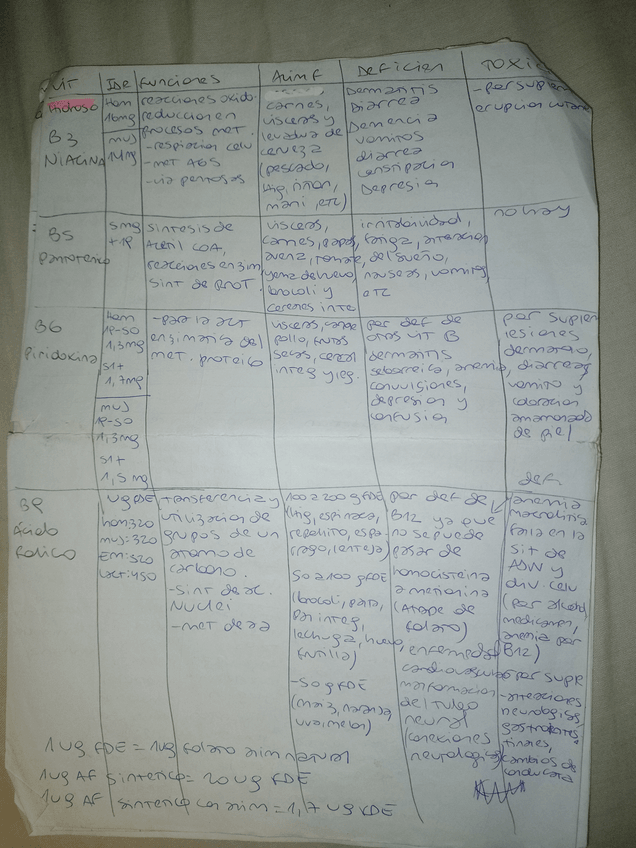 VIT IDE funciones Alimf Deficien TOXIC
Hidroso
B3
NIACINA
Hom
16mg
muj
14mg
reacciones oxido
reduccion en
procesos met.
- respiracion celu
- met AGS
- via pentosas
carnes,
visceras y
levadura de
cerveza
(pescado,
hig, riñon,
mani, etc)
Dermatitis
Diarrea
Demencia
vomitos
diarrea
constipacion
Depresion
- por suplem
erupcion cutane
B5
pantotenico
5mg
+19
sintesis de
Acetil COA,
reacciones enzim
sint de prot.
visceras,
carnes, papas,
avena, tomate,
yema de huevo,
brocoli y
cereales inte
irritabilidad,
fatiga, alteracion
del sueño,
nauseas, vomitos,
etc
no hay
B6
piridoxina
Hom
19-50
1,3mg
51+
1,7mg
muj
19-50
1,3mg
51+
1,5mg
- para la act
enzimatica del
met. proteico
visceras, carne
pollo, frutos
secos, cereal
integ y leg.
por def de
otras vit B
dermatitis
seborreica, anemia,
convulsiones,
depresion y
confusion
por suplem
lesiones
dermatolo,
diarreas,
vomito y
coloracion
amarronado
de piel
B9
Ácido
folico
ug FDE
hom:320
muj:320
Em:520
lact:450
transferencia y
utilizacion de
grupos de un
atomo de
carbono.
- sint de ac.
Nuclei
- met de aa
100 a 200 g FDE
(hig, espinaca,
repollito, espa-
rrago, lenteja)
50 a 100 g FDE
(brocoli, palta,
pan integ,
lechuga, huevo,
frutilla)
-50 g FDE
(maiz, naranja,
uva, melon)
por def de
B12 ya que
no se puede
pasar de
homocisteina
a metionina
(Atrape de
folato)
enfermedad
cardiovascular
malformacion
del tubo
neural
(conexiones
neurologicas)
defi
anemia
macrolitica
falla en la
sit de
ADN y
div. celu
(por alcohol,
medicamen,
anemia por
B12)
por supre
- alteraciones
neurologicas,
gastrointes
tinales,
cambios de
conducta
1 ug FDE = 1 ug folato alim natural
1 ug AF sintetico = 20 ug FDE
1 ug AF sintetico con alim = 1,7 ug FDE